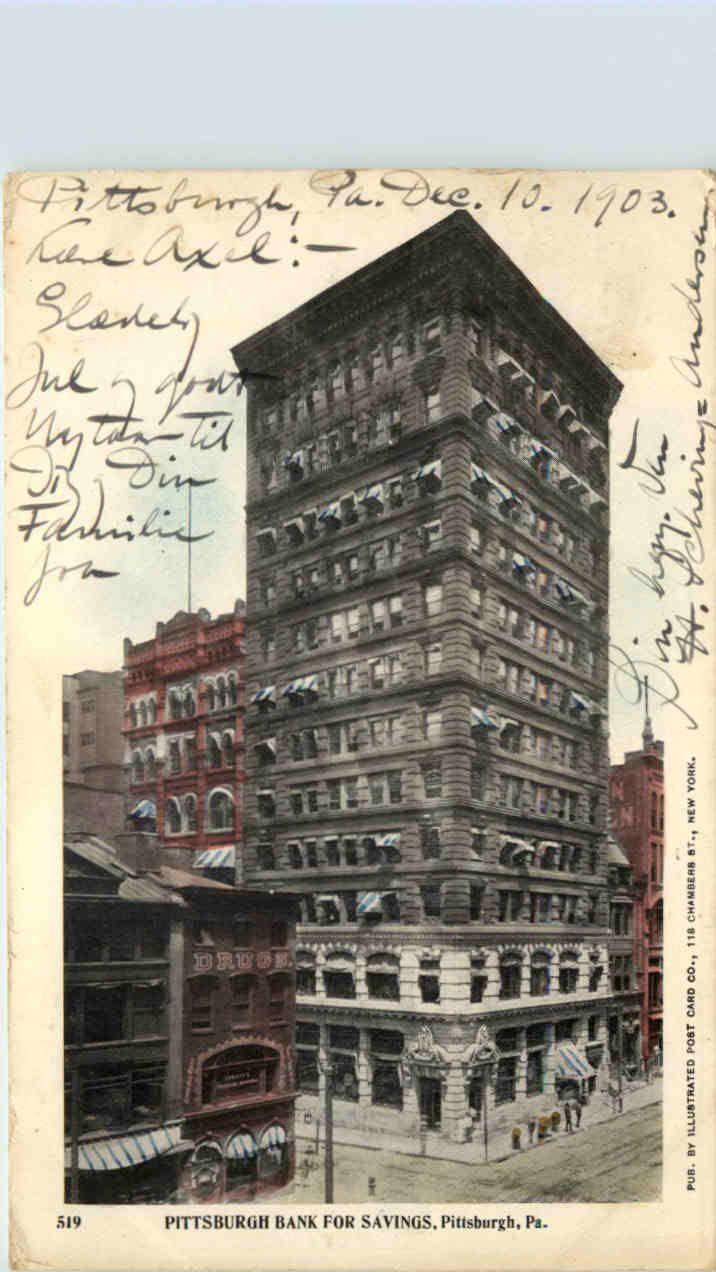 Pittsburgh, Pa. Dec. 10. 1903.
Kære Axel:—
Glædelig
Jul og godt
Nytaar til
Dig og Din
Familie
fra
Din hgv. Ven
H. Schevring-Andersen
DRUGS
519
PITTSBURGH BANK FOR SAVINGS, Pittsburgh, Pa.
PUB. BY ILLUSTRATED POST CARD CO., 118 CHAMBERS ST., NEW YORK.